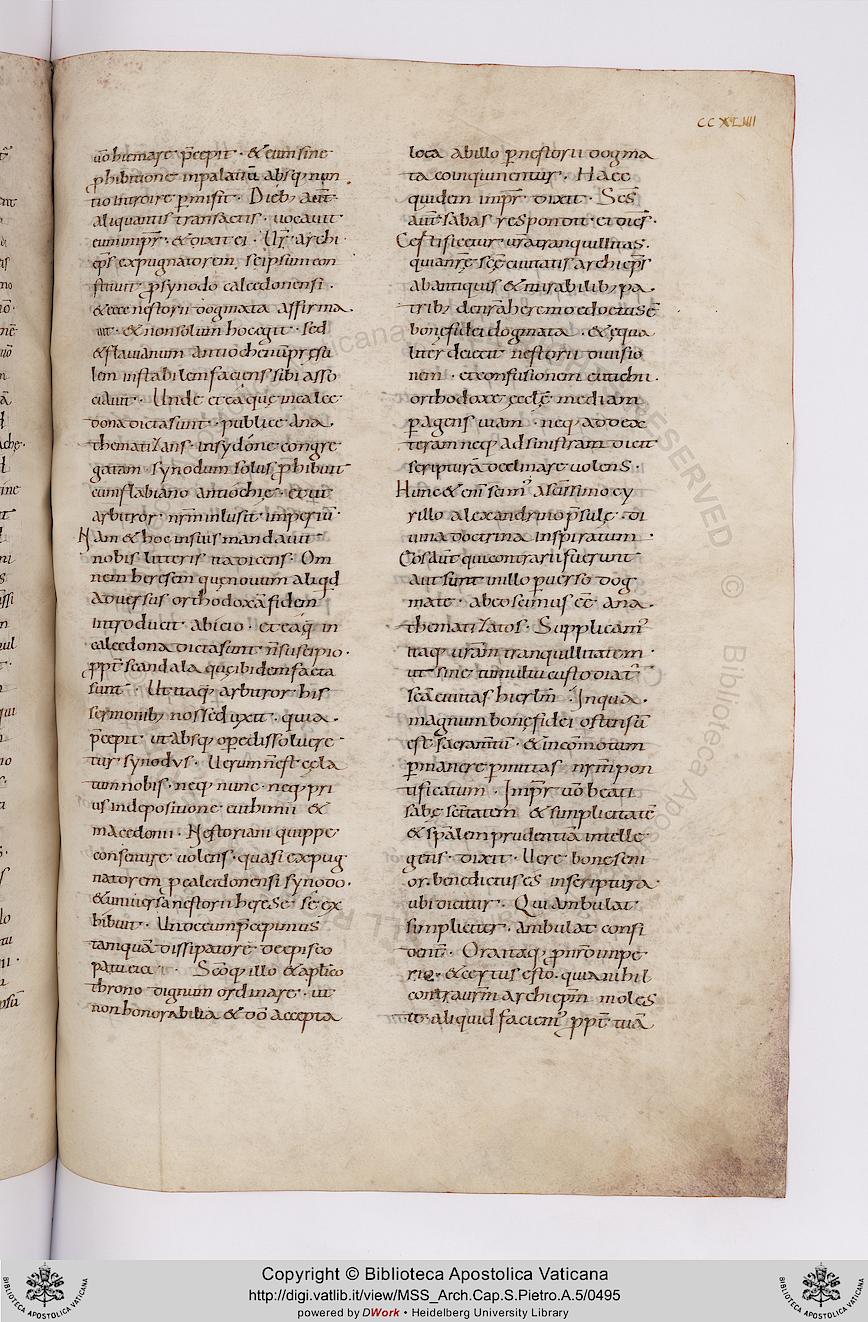 CCXLIIII
uōhiemare p̄cepit · & eum sine
ꝓhibitione inpalatiū absq; nun
tio introire p̄misit · Dieb; aūt
aliquantis transactis · uocauit
eum imp̄r · & dixit ei · Ur̄ archi
ep̄s expugnatorem seipsum con
stituit ꝓ synodo calcedonensi ·
& ecce nestorii dogmata affirma
uit · & non solum hoc egit · sed
& flauianum antiochenū p̄su
lem instabilem faciens sibi asso
ciauit · Unde et ea quę incalce
dona dicta sunt · publice ana
thematizans · insydōne congre
gatam synodum solus ꝓhibuit
cum flabiano antiochię · et ut
arbitror nr̄m inlusit imperiū ·
Nam & hoc insuis mandauit
nobis litteris ita dicens · Om
nem heresem quę nouum aliqd
aduersus orthodoxā fidem
introducit abicio · et eaq; in
calcedona dicta sunt n̄ suscipio ·
ꝓpt̄ scandala quę ibidem facta
sunt · Ut itaq; arbitror his
sermonib; nos seduxit · quia
p̄cepit ut absq; ope dissoluere
tur synodus · Uerum n̄ est cęla
tum nobis · neq; nunc · neq; pri
us indepositione euthimii &
macedonii · Nestoriani quippe
consentire uolens · quasi expug
natorem ꝑ calcedonensi synodo ·
& uniuersa nestorii herese se ex
hibuit · Unde eum p̄cepimus
tamquā dissipatorē de episco
patu eici · Scōq; illo & apl̄ico
throno dignum ordinare · ut
non honorabilia & dō accepta
loca ab illo ꝑ nestorii dogma
ta coinquinentur · Haec
quidem imp̄r dixit · Sc̄s
aūt sabas respondit ei dicēs ·
Certificetur ur̄a tranquillitas ·
quia nr̄ę sc̄ę ciuitatis archiep̄s
ab antiquis & mirabilib; pa
trib; denr̄a heremo edoctus ē
bonę fidei dogmata · & ęqua
liter deiecit nestorii diuisio
nem · et confusionem eutichii ·
orthodoxę ęcclę mediam
ꝑagens uiam · neq; addex
teram neq; adsinistram dicit
scripturā declinare uolens ·
Hunc & ēm scim; a sc̄issimo cy
rillo alexandrino p̄sulę · di
uina doctrina inspiratum ·
Eos aūt qui contrarii fuerunt
aut sunt in illo ꝑuerso dog
mate · abeo scimus eē ana
thematizatos · Supplicam;
itaq; ur̄am tranquillitatem ·
ut sine tumultu custodiat;
sc̄a ciuitas hierlm̄ · Inqua
magnum bonę fidei ostensū
est sacram̄tū · & incōmotum
ꝑmanere p̄mittas nr̄m pon
tificatum · Imp̄r uō beati
sabę sc̄itatem & simplicitatē
& sp̄alem prudentiā intelle
gens · dixit · Uere bone seni
or · benedictus es inscriptura
ubi dicitur · Qui ambulat
simpliciter · ambulat confi
dent̄ · Ora itaq; ꝓ nr̄o impe
rio · & certus esto · quia nihil
contra ur̄m archiep̄m moles
te aliquid faciem; ꝓpt̄ tuā
Copyright © Biblioteca Apostolica Vaticana
http://digi.vatlib.it/view/MSS_Arch.Cap.S.Pietro.A.5/0495
powered by DWork • Heidelberg University Library